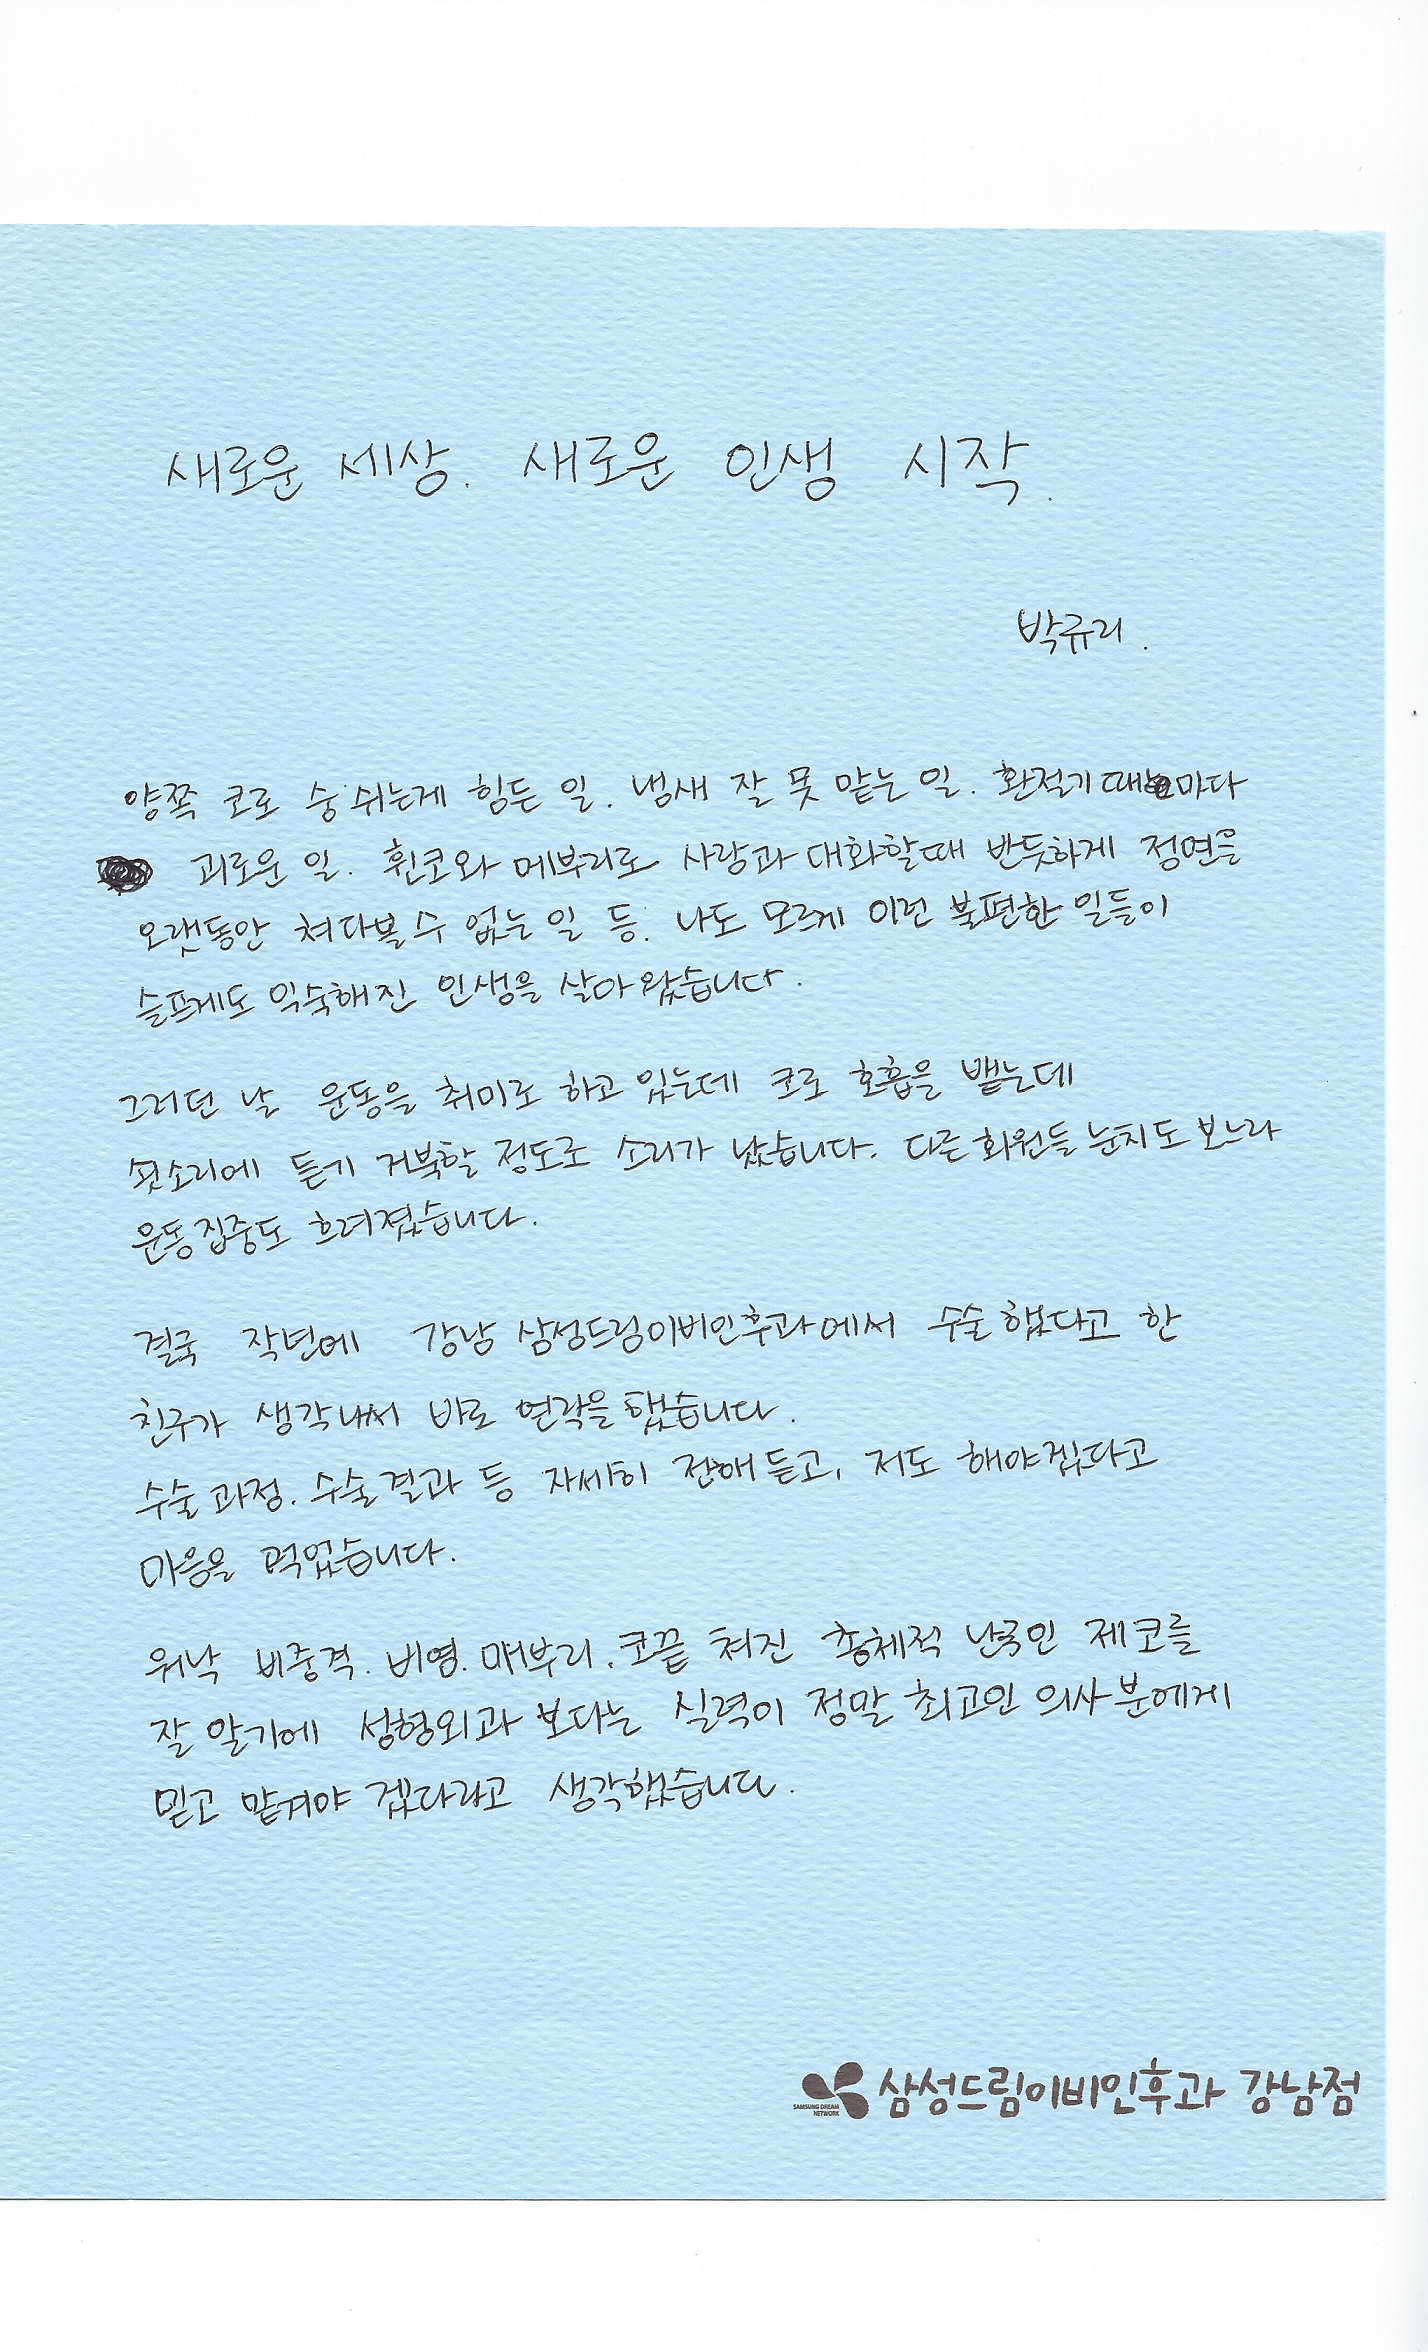 새로운 세상. 새로운 인생 시작.
박규리.
양쪽 코로 숨 쉬는게 힘든 일. 냄새 잘 못 맡는 일. 환절기 때마다
괴로운 일. 휜코와 메부리로 사람과 대화할때 반듯하게 정면을
오랫동안 쳐다볼 수 없는 일 등. 나도 모르게 이런 불편한 일들이
슬프게도 익숙해진 인생을 살아왔습니다.
그러던 날 운동을 취미로 하고 있는데 코로 호흡을 뱉는데
쇳소리에 듣기 거북할 정도로 소리가 났습니다. 다른 회원들 눈치도 보느라
운동집중도 흐려졌습니다.
결국 작년에 강남 삼성드림이비인후과에서 수술했다고 한
친구가 생각나서 바로 연락을 했습니다.
수술 과정. 수술결과 등 자세히 전해 듣고, 저도 해야겠다고
마음을 먹었습니다.
워낙 비중격. 비염. 매부리. 코끝 쳐진 총체적 난국인 제코를
잘 알기에 성형외과 보다는 실력이 정말 최고인 의사분에게
믿고 맡겨야 겠다라고 생각했습니다.
SAMSUNG DREAM
NETWORK
삼성드림이비인후과 강남점